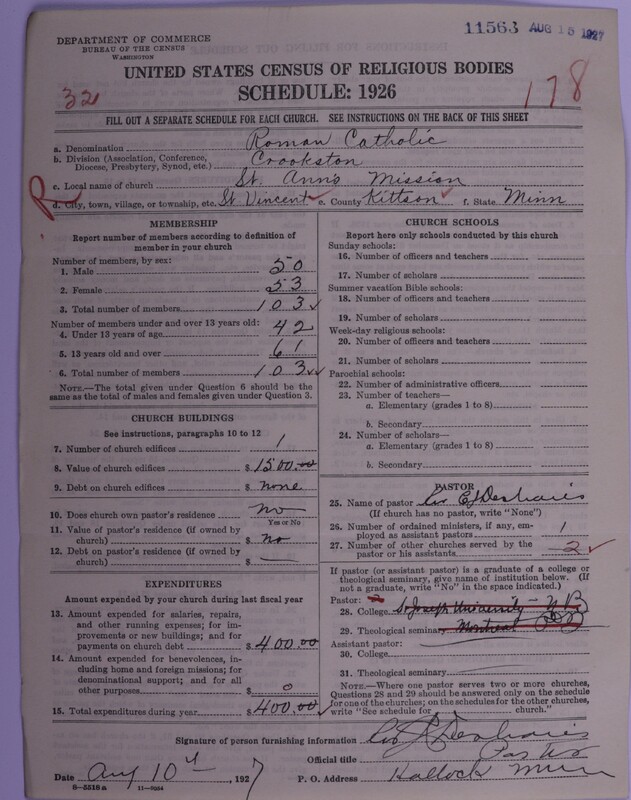 11563 AUG 15 1927
DEPARTMENT OF COMMERCE
BUREAU OF THE CENSUS
WASHINGTON
UNITED STATES CENSUS OF RELIGIOUS BODIES
SCHEDULE: 1926
32
178
FILL OUT A SEPARATE SCHEDULE FOR EACH CHURCH. SEE INSTRUCTIONS ON THE BACK OF THIS SHEET
a. Denomination Roman Catholic
b. Division (Association, Conference,
Diocese, Presbytery, Synod, etc.) Crookston
c. Local name of church St. Ann's Mission
R
d. City, town, village, or township, etc. St Vincent e. County Kittson f. State Minn
MEMBERSHIP
Report number of members according to definition of
member in your church
Number of members, by sex:
1. Male 50
2. Female 53
3. Total number of members 103
Number of members under and over 13 years old:
4. Under 13 years of age 42
5. 13 years old and over 61
6. Total number of members 103
NOTE.—The total given under Question 6 should be
the same as the total of males and females given under Question 3.
CHURCH BUILDINGS
See instructions, paragraphs 10 to 12
7. Number of church edifices 1
8. Value of church edifices $ 1500.00
9. Debt on church edifices $ none
10. Does church own pastor's residence? no
Yes or No
11. Value of pastor's residence (if owned by
church) $ no
12. Debt on pastor's residence (if owned by
church) $ —
EXPENDITURES
Amount expended by church during last fiscal year
13. Amount expended for salaries, repairs,
and other running expenses; for im-
provements or new buildings; and for
payments on church debt $ 400.00
14. Amount expended for benevolences, in-
cluding home and foreign missions; for
denominational support; and for all
other purposes $ 0
15. Total expenditures during year $ 400.00
CHURCH SCHOOLS
Report here only schools conducted by this church
Sunday schools:
16. Number of officers and teachers
17. Number of scholars
Summer vacation Bible schools:
18. Number of officers and teachers
19. Number of scholars
Week-day religious schools:
20. Number of officers and teachers
21. Number of scholars
Parochial schools:
22. Number of administrative officers
23. Number of teachers—
a. Elementary (grades 1 to 8)
b. Secondary
24. Number of scholars—
a. Elementary (grades 1 to 8)
b. Secondary
PASTOR
25. Name of pastor
(If church has no pastor, write "None")
26. Number of ordained ministers, if any, em-
ployed as assistant pastors 1
27. Number of other churches served by the
pastor or his assistants 2
If pastor (or assistant pastor) is a graduate of a college or
theological seminary, give name of institution below. (If
not a graduate, write "No" in the space indicated.)
Pastor:
28. College St Joseph University N B
29. Theological seminary Montreal
Assistant pastor:
30. College
31. Theological seminary
NOTE.—Where one pastor serves two or more churches,
Questions 28 and 29 should be answered only on the schedule
for one of the churches; on the schedules for the other churches,
write "See schedule for church."
Signature of person furnishing information
Official title Pastor
Date Aug 10th, 1927
P. O. Address Hallock Minn
8-5518 a 11-9054